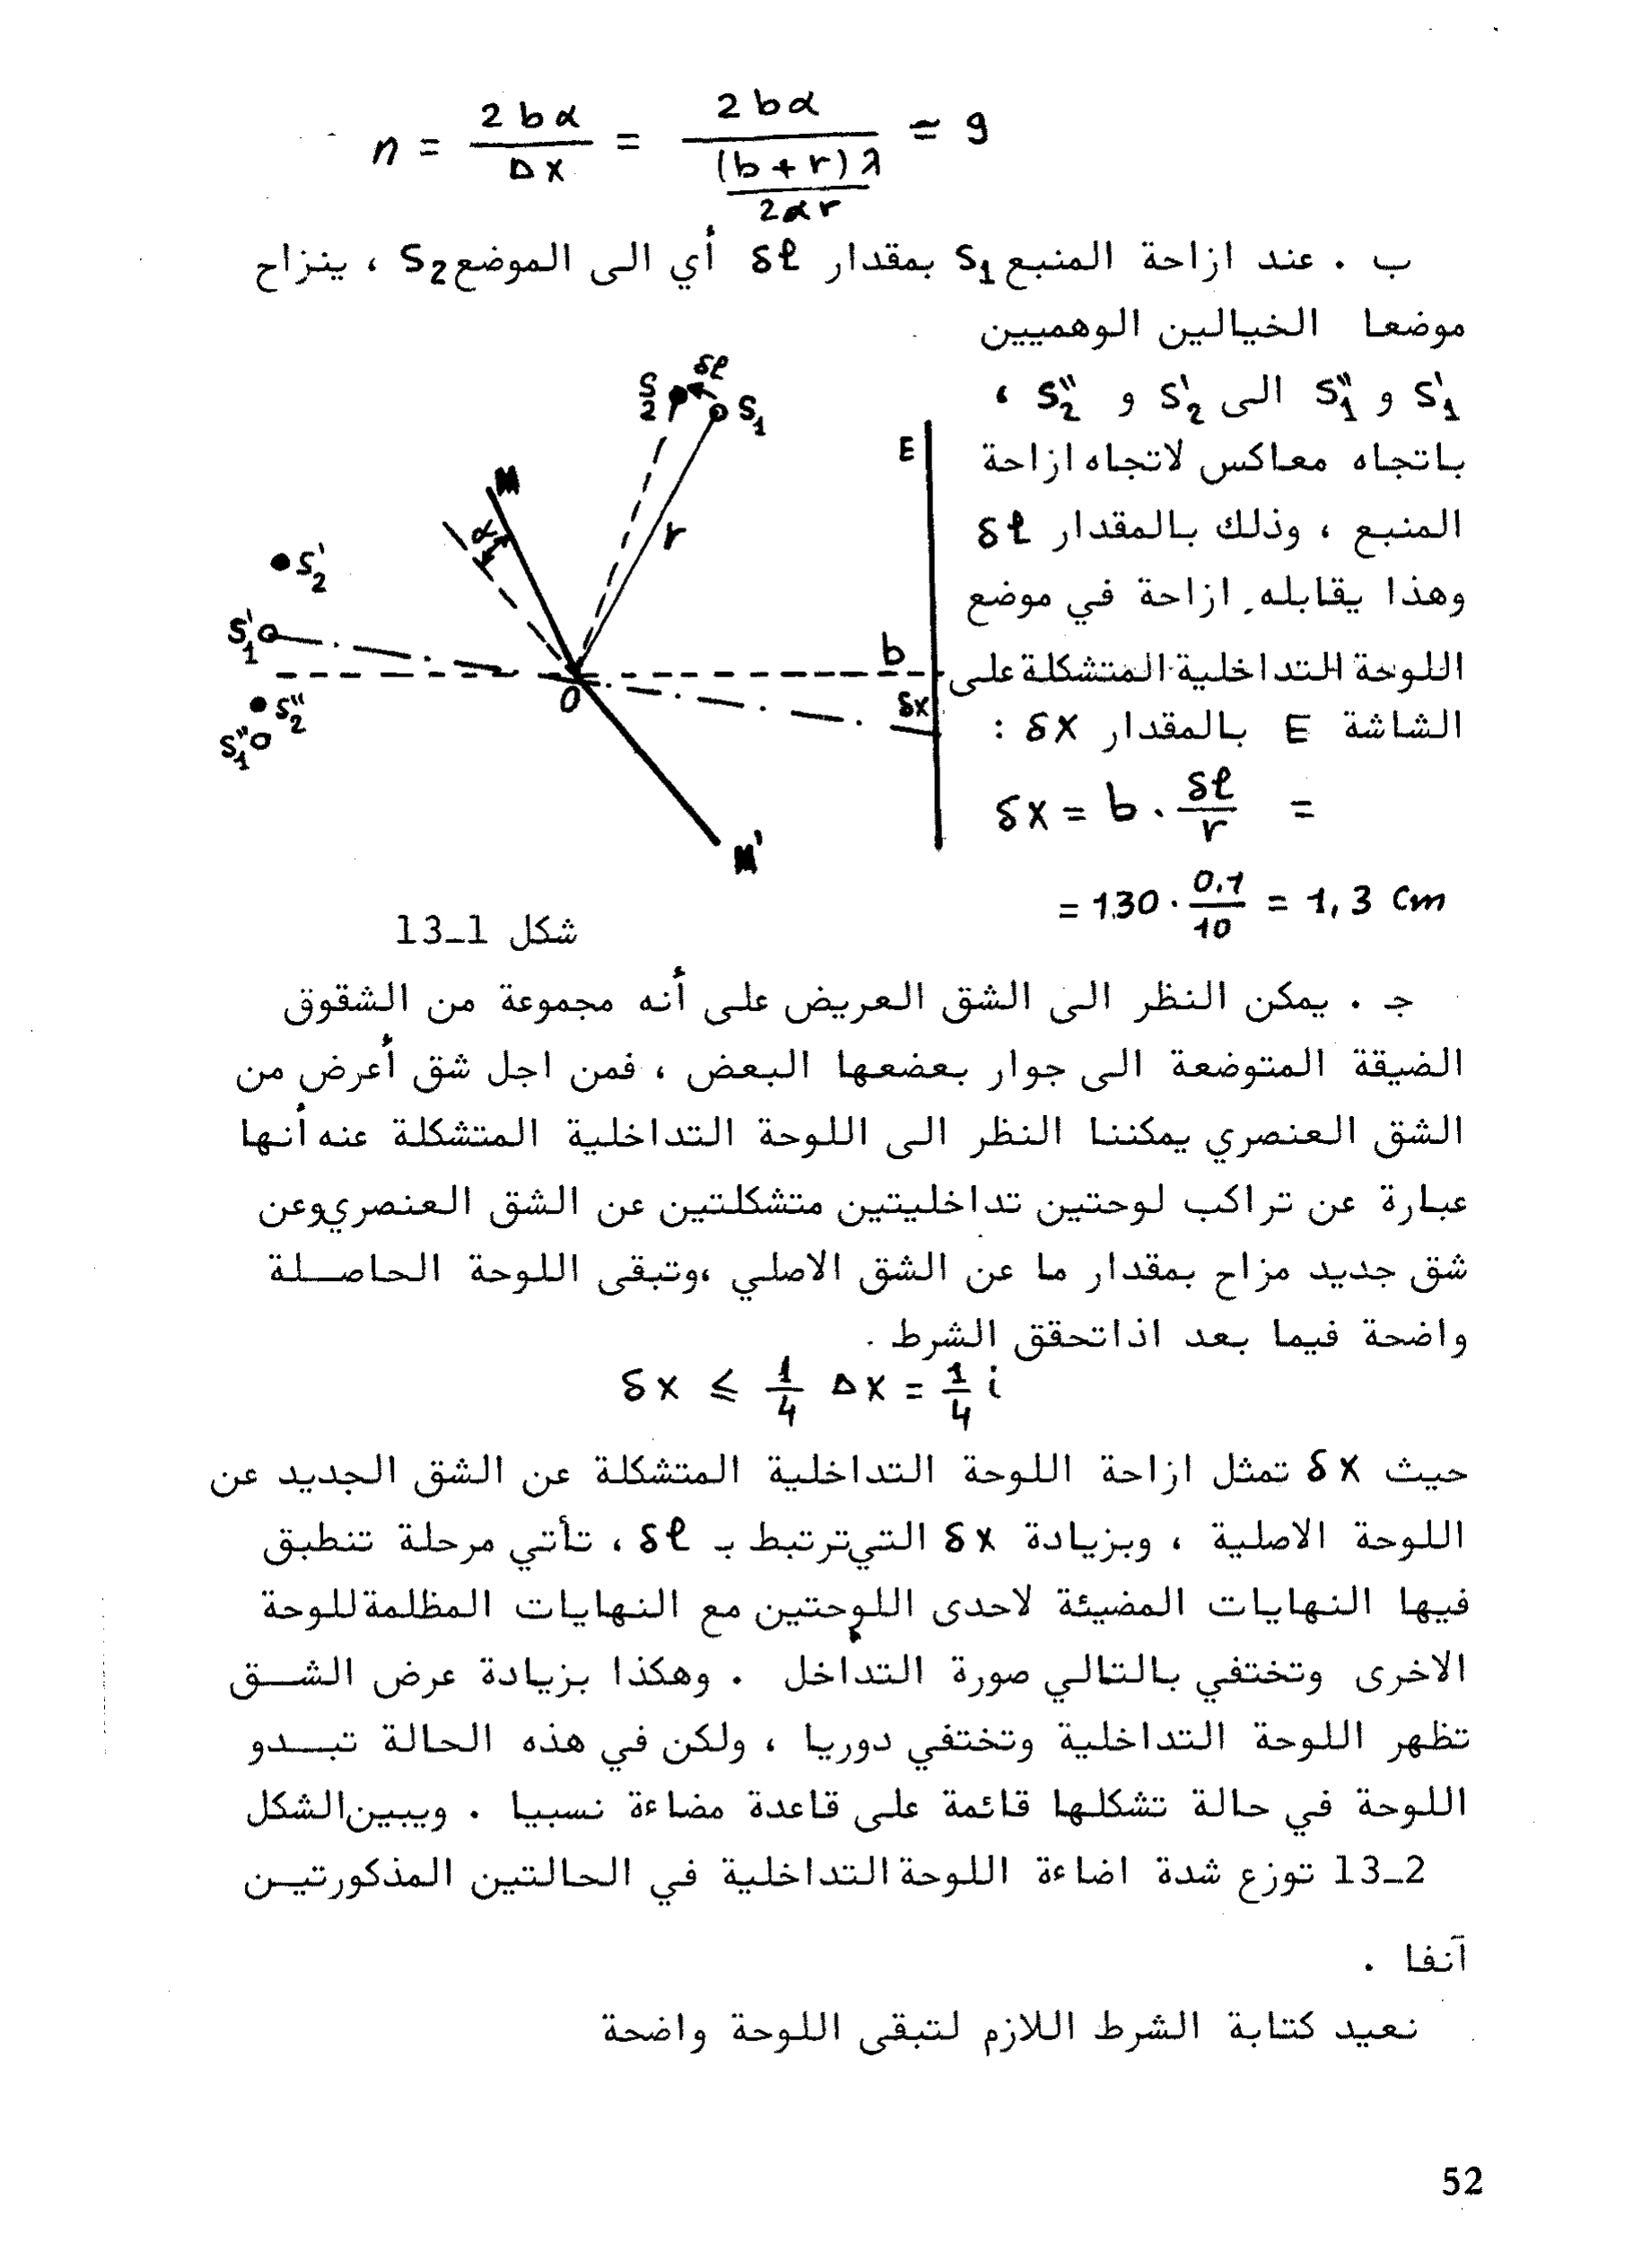 n = 2bα / Δx = 2bα / ((b+r)λ / 2αr) = 9
ب . عند ازاحة المنبع S₁ بمقدار δℓ أي الى الموضع S₂ ، ينزاح
موضعا الخيالين الوهميين
S'₁ و S''₁ الى S'₂ و S''₂ ،
باتجاه معاكس لاتجاه ازاحة
المنبع ، وذلك بالمقدار δℓ
وهذا يقابله ازاحة في موضع
اللوحة التداخلية المتشكلة على
الشاشة E بالمقدار δx :
δx = b . δℓ / r =
= 130 . 0,1 / 10 = 1,3 Cm
δℓ
S₂
S₁
E
M
α
r
S'₂
S'₁
b
O
δx
S''₂
S''₁
M'
شكل 1_13
جـ . يمكن النظر الى الشق العريض على أنه مجموعة من الشقوق
الضيقة المتوضعة الى جوار بعضعها البعض ، فمن اجل شق أعرض من
الشق العنصري يمكننا النظر الى اللوحة التداخلية المتشكلة عنه أنها
عبارة عن تراكب لوحتين تداخليتين متشكلتين عن الشق العنصري وعن
شق جديد مزاح بمقدار ما عن الشق الاصلي ،وتبقى اللوحة الحاصــلة
واضحة فيما بعد اذا تحقق الشرط .
δx ⩽ 1/4 Δx = 1/4 i
حيث δx تمثل ازاحة اللوحة التداخلية المتشكلة عن الشق الجديد عن
اللوحة الاصلية ، وبزيادة δx التي ترتبط بـ δℓ ، تأتي مرحلة تنطبق
فيها النهايات المضيئة لاحدى اللوحتين مع النهايات المظلمة للوحة
الاخرى وتختفي بالتالي صورة التداخل . وهكذا بزيادة عرض الشــق
تظهر اللوحة التداخلية وتختفي دوريا ، ولكن في هذه الحالة تبــدو
اللوحة في حالة تشكلها قائمة على قاعدة مضاءة نسبيا . ويبين الشكل
2_13 توزع شدة اضاءة اللوحة التداخلية في الحالتين المذكورتيـن
آنفا .
نعيد كتابة الشرط اللازم لتبقى اللوحة واضحة
52